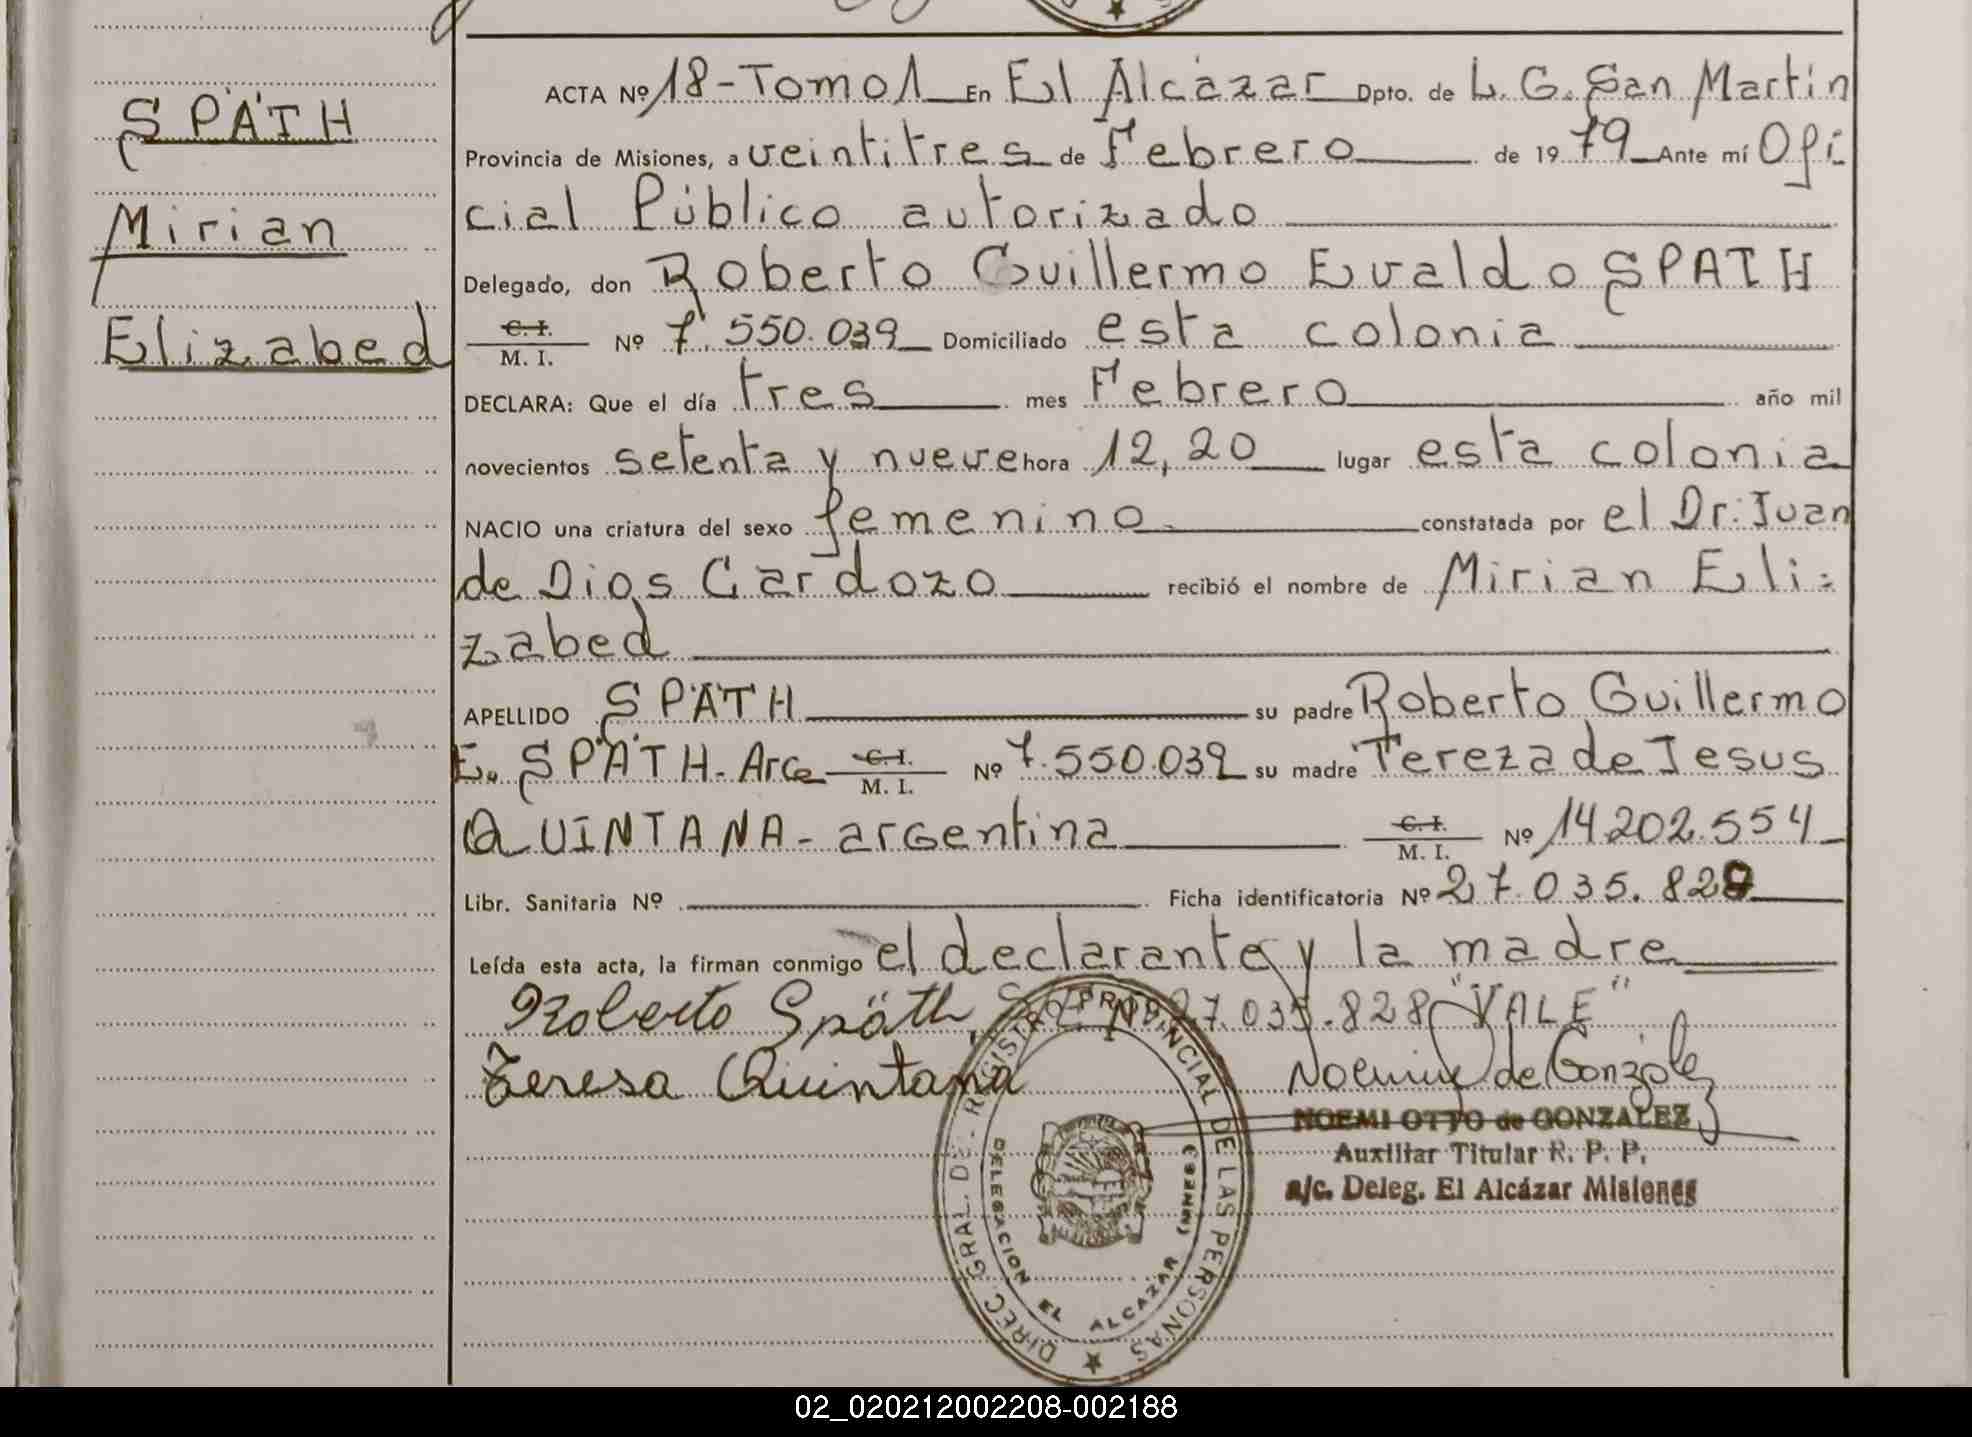 SPÄTH
Mirian
Elizabed
ACTA Nº 18-Tomo 1 En El Alcázar Dpto. de L. G. San Martín
Provincia de Misiones, a veintitres de Febrero de 1979 Ante mí Ofi
cial Público autorizado
Delegado, don Roberto Guillermo Evaldo SPATH
C. I. / M. I. Nº 7.550.039 Domiciliado esta colonia
DECLARA: Que el día tres mes Febrero año mil
novecientos setenta y nueve hora 12,20 lugar esta colonia
NACIO una criatura del sexo femenino constatada por el Dr. Juan
de Dios Cardozo recibió el nombre de Mirian Eli-
zabed
APELLIDO SPÄTH su padre Roberto Guillermo
E. SPÄTH - Arg C. I. / M. I. Nº 7.550.039 su madre Tereza de Jesus
QUINTANA - argentina C. I. / M. I. Nº 14.202.554
Libr. Sanitaria Nº Ficha identificatoria Nº 27.035.828
Leída esta acta, la firman conmigo el declarante y la madre
Roberto Späth 27.035.828 "VALE"
Teresa Quintana Noemi de González
NOEMI OTTO de GONZALEZ
Auxiliar Titular R. P. P.
a/c. Deleg. El Alcázar Misiones
DIREC. GRAL. DE REGISTRO PROVINCIAL DE LAS PERSONAS
DELEGACION EL ALCAZAR (MISIONES)
02_020212002208-002188